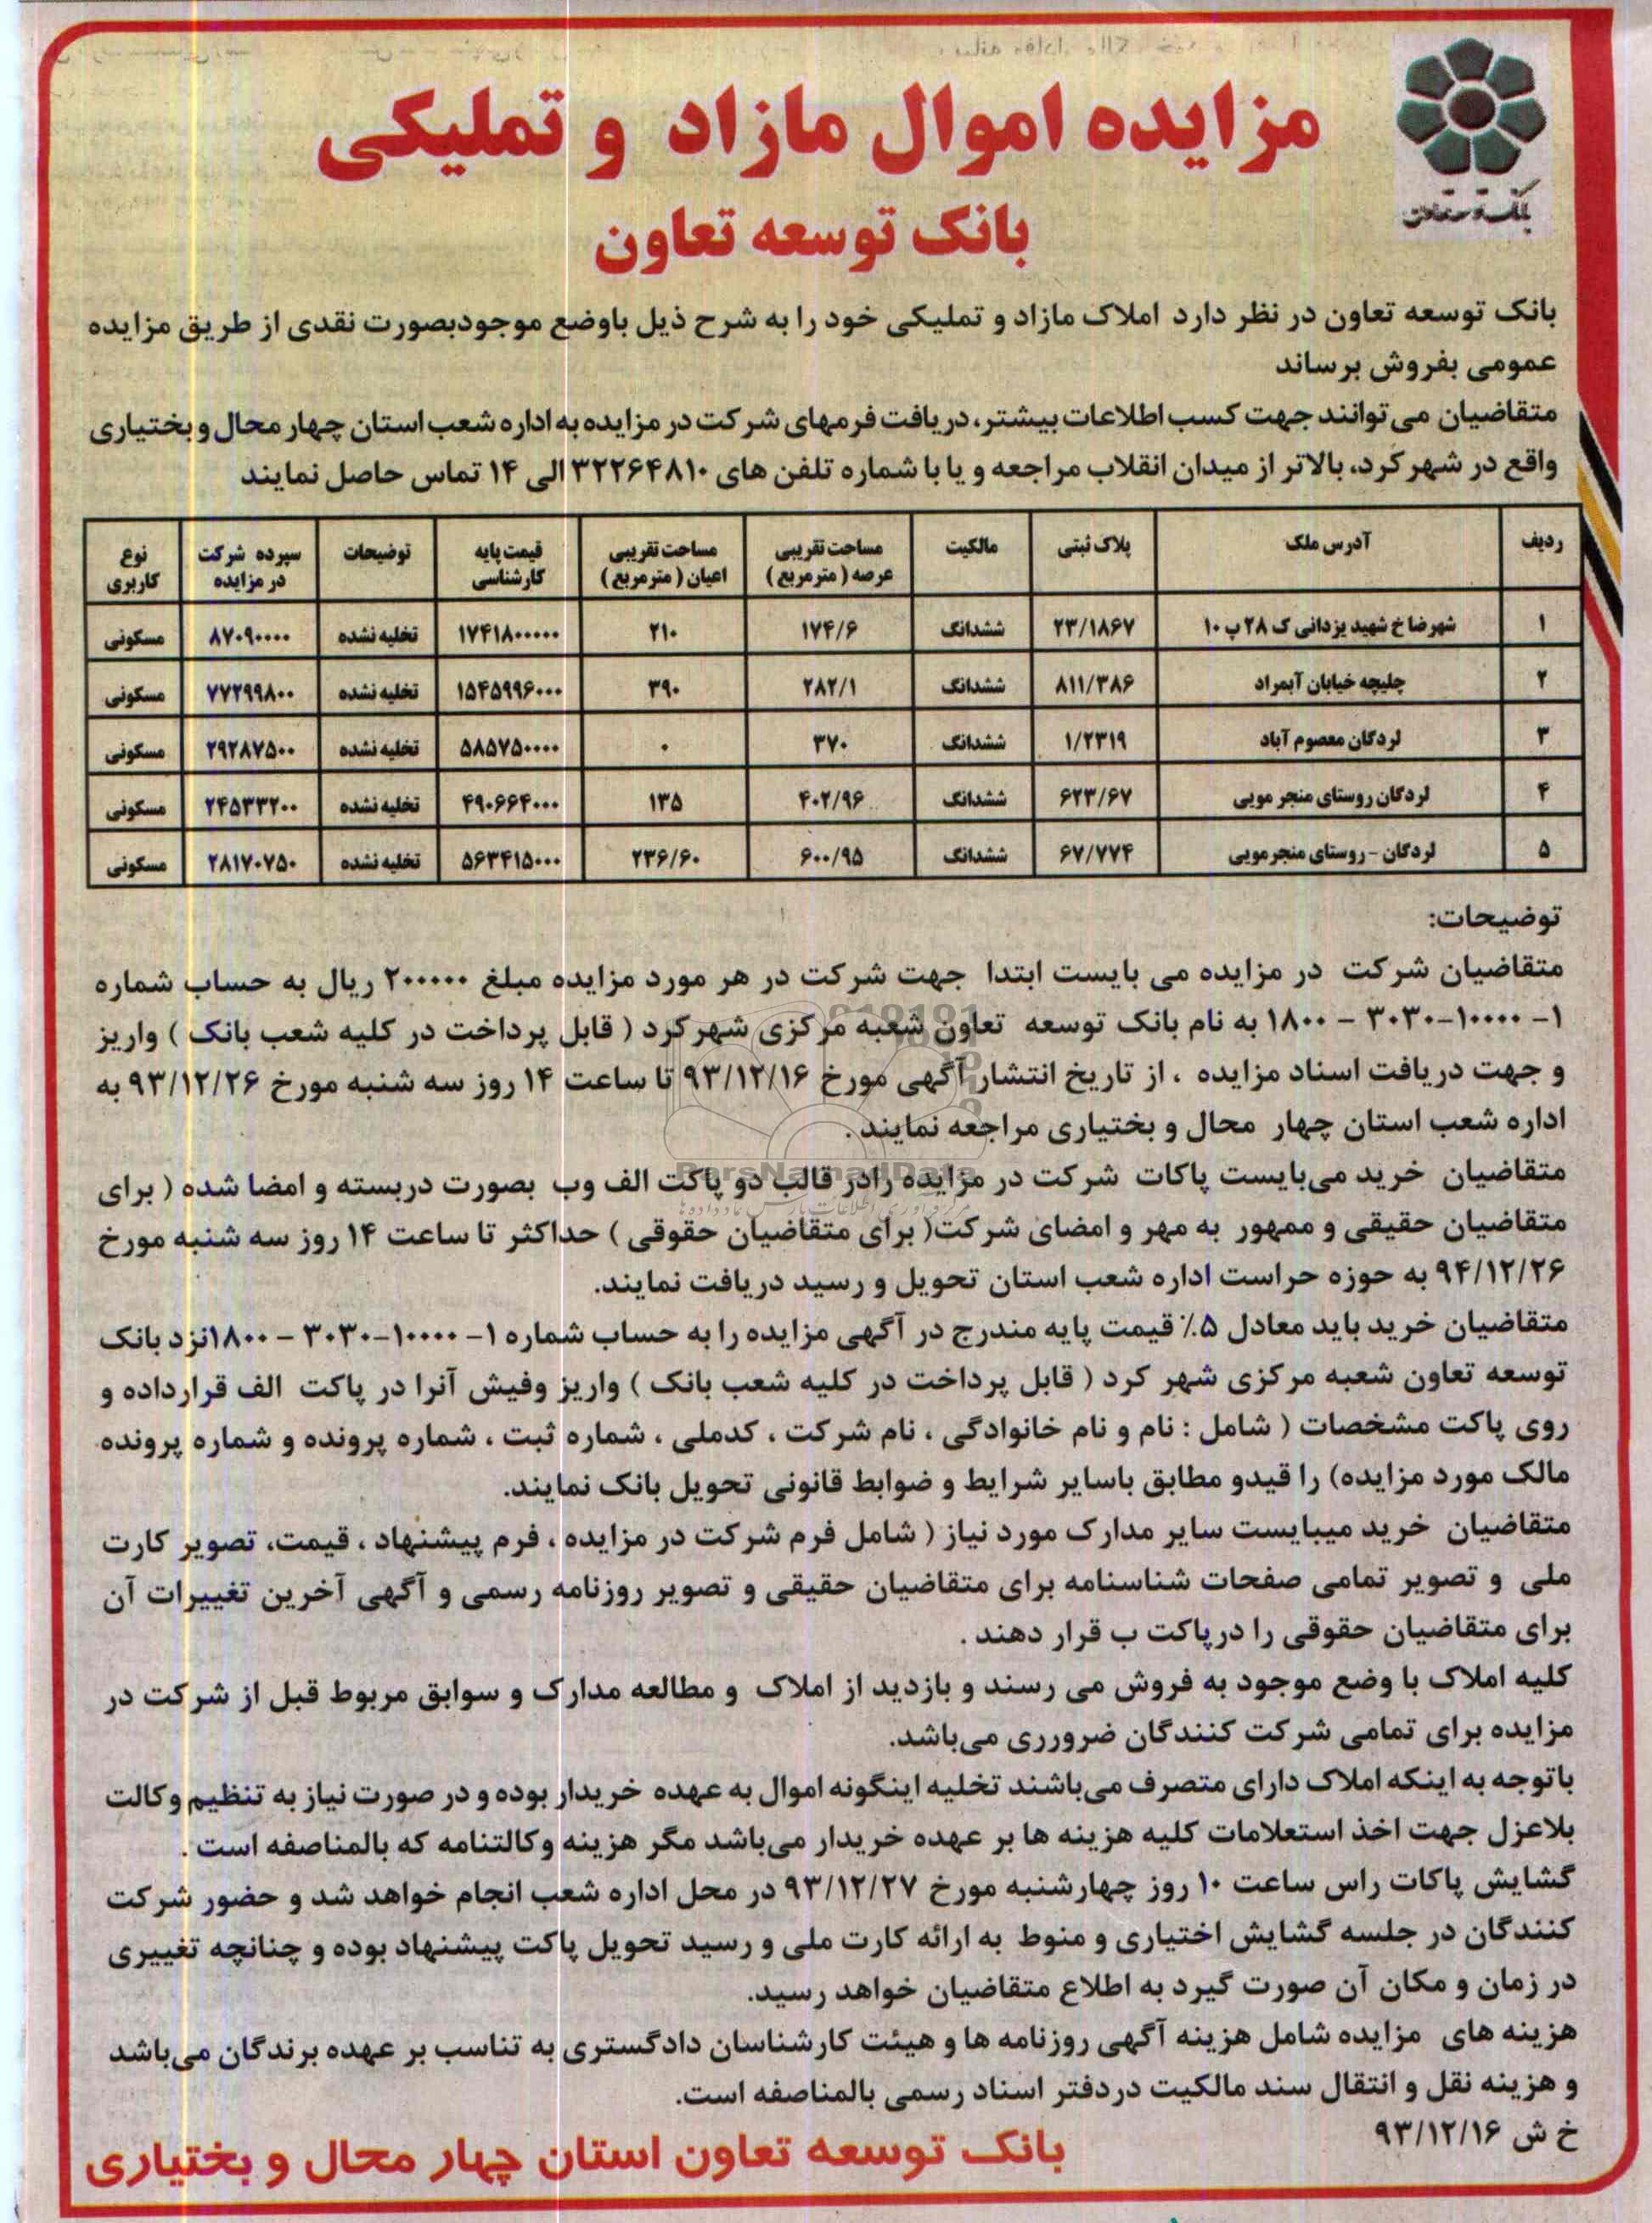 مزایده اموال مازاد و تملیکی
بانک توسعه تعاون
بانک توسعه تعاون در نظر دارد املاک مازاد و تملیکی خود را به شرح ذیل باوضع موجودبصورت نقدی از طریق مزایده
عمومی بفروش برساند
متقاضیان می توانند جهت کسب اطلاعات بیشتر، دریافت فرمهای شرکت در مزایده به اداره شعب استان چهار محال و بختیاری
واقع در شهر کرد، بالاتر از میدان انقلاب مراجعه و یا با شماره تلفن های ۳۲۲۶۴۸۱۰ الی ۱۴ تماس حاصل نمایند
ردیف | آدرس ملک | پلاک ثبتی | مالکیت | مساحت تقریبی عرصه ( مترمربع ) | مساحت تقریبی اعیان ( مترمربع ) | قیمت پایه کارشناسی | توضیحات | سپرده شرکت در مزایده | نوع کاربری
۱ | شهرضا خ شهید یزدانی ک ۲۸ پ ۱۰ | ۲۳/۱۸۶۷ | ششدانگ | ۱۷۴/۶ | ۲۱۰ | ۱۷۴۱۸۰۰۰۰۰ | تخلیه نشده | ۸۷۰۹۰۰۰۰ | مسکونی
۲ | چلیچه خیابان آبمراد | ۸۱۱/۳۸۶ | ششدانگ | ۲۸۲/۱ | ۳۹۰ | ۱۵۴۵۹۹۶۰۰۰ | تخلیه نشده | ۷۷۲۹۹۸۰۰ | مسکونی
۳ | لردگان معصوم آباد | ۱/۲۳۱۹ | ششدانگ | ۳۷۰ | ۰ | ۵۸۵۷۵۰۰۰۰ | تخلیه نشده | ۲۹۲۸۷۵۰۰ | مسکونی
۴ | لردگان روستای منجر مویی | ۶۲۳/۶۷ | ششدانگ | ۴۰۲/۹۶ | ۱۳۵ | ۴۹۰۶۶۴۰۰۰ | تخلیه نشده | ۲۴۵۳۳۲۰۰ | مسکونی
۵ | لردگان - روستای منجرمویی | ۶۷/۷۷۴ | ششدانگ | ۶۰۰/۹۵ | ۲۳۶/۶۰ | ۵۶۳۴۱۵۰۰۰ | تخلیه نشده | ۲۸۱۷۰۷۵۰ | مسکونی
توضیحات:
متقاضیان شرکت در مزایده می بایست ابتدا جهت شرکت در هر مورد مزایده مبلغ ۲۰۰۰۰۰ ریال به حساب شماره
۱- ۱۰۰۰۰-۳۰۳۰ - ۱۸۰۰ به نام بانک توسعه تعاون شعبه مرکزی شهرکرد ( قابل پرداخت در کلیه شعب بانک ) واریز
و جهت دریافت اسناد مزایده ، از تاریخ انتشار آگهی مورخ ۹۳/۱۲/۱۶ تا ساعت ۱۴ روز سه شنبه مورخ ۹۳/۱۲/۲۶ به
اداره شعب استان چهار محال و بختیاری مراجعه نمایند .
متقاضیان خرید می‌بایست پاکات شرکت در مزایده رادر قالب دو پاکت الف وب بصورت دربسته و امضا شده ( برای
متقاضیان حقیقی و ممهور به مهر و امضای شرکت( برای متقاضیان حقوقی ) حداکثر تا ساعت ۱۴ روز سه شنبه مورخ
۹۴/۱۲/۲۶ به حوزه حراست اداره شعب استان تحویل و رسید دریافت نمایند.
متقاضیان خرید باید معادل ۵٪ قیمت پایه مندرج در آگهی مزایده را به حساب شماره ۱- ۱۰۰۰۰-۳۰۳۰ - ۱۸۰۰نزد بانک
توسعه تعاون شعبه مرکزی شهر کرد ( قابل پرداخت در کلیه شعب بانک ) واریز وفیش آنرا در پاکت الف قرارداده و
روی پاکت مشخصات ( شامل : نام و نام خانوادگی ، نام شرکت ، کدملی ، شماره ثبت ، شماره پرونده و شماره پرونده
مالک مورد مزایده) را قیدو مطابق باسایر شرایط و ضوابط قانونی تحویل بانک نمایند.
متقاضیان خرید میبایست سایر مدارک مورد نیاز ( شامل فرم شرکت در مزایده ، فرم پیشنهاد ، قیمت، تصویر کارت
ملی و تصویر تمامی صفحات شناسنامه برای متقاضیان حقیقی و تصویر روزنامه رسمی و آگهی آخرین تغییرات آن
برای متقاضیان حقوقی را درپاکت ب قرار دهند .
کلیه املاک با وضع موجود به فروش می رسند و بازدید از املاک و مطالعه مدارک و سوابق مربوط قبل از شرکت در
مزایده برای تمامی شرکت کنندگان ضرورری می‌باشد.
باتوجه به اینکه املاک دارای متصرف می‌باشند تخلیه اینگونه اموال به عهده خریدار بوده و در صورت نیاز به تنظیم وکالت
بلاعزل جهت اخذ استعلامات کلیه هزینه ها بر عهده خریدار می‌باشد مگر هزینه وکالتنامه که بالمناصفه است .
گشایش پاکات راس ساعت ۱۰ روز چهارشنبه مورخ ۹۳/۱۲/۲۷ در محل اداره شعب انجام خواهد شد و حضور شرکت
کنندگان در جلسه گشایش اختیاری و منوط به ارائه کارت ملی و رسید تحویل پاکت پیشنهاد بوده و چنانچه تغییری
در زمان و مکان آن صورت گیرد به اطلاع متقاضیان خواهد رسید.
هزینه های مزایده شامل هزینه آگهی روزنامه ها و هیئت کارشناسان دادگستری به تناسب بر عهده برندگان می‌باشد
و هزینه نقل و انتقال سند مالکیت دردفتر اسناد رسمی بالمناصفه است.
خ ش ۹۳/۱۲/۱۶
بانک توسعه تعاون استان چهار محال و بختیاری
ParsNamadData